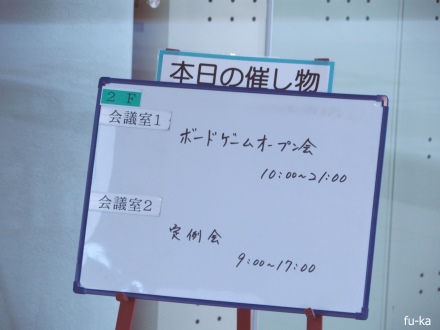 本日の催し物
2F
会議室1
ボードゲームオープン会
10:00~21:00
会議室2
定例会
9:00~17:00
fu-ka